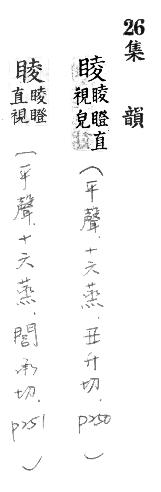 26集韻
睖睖瞪直視皃
(平聲.十六蒸.丑升切.p250)
睖睖瞪直視
(平聲.十六蒸.閭承切.p251)